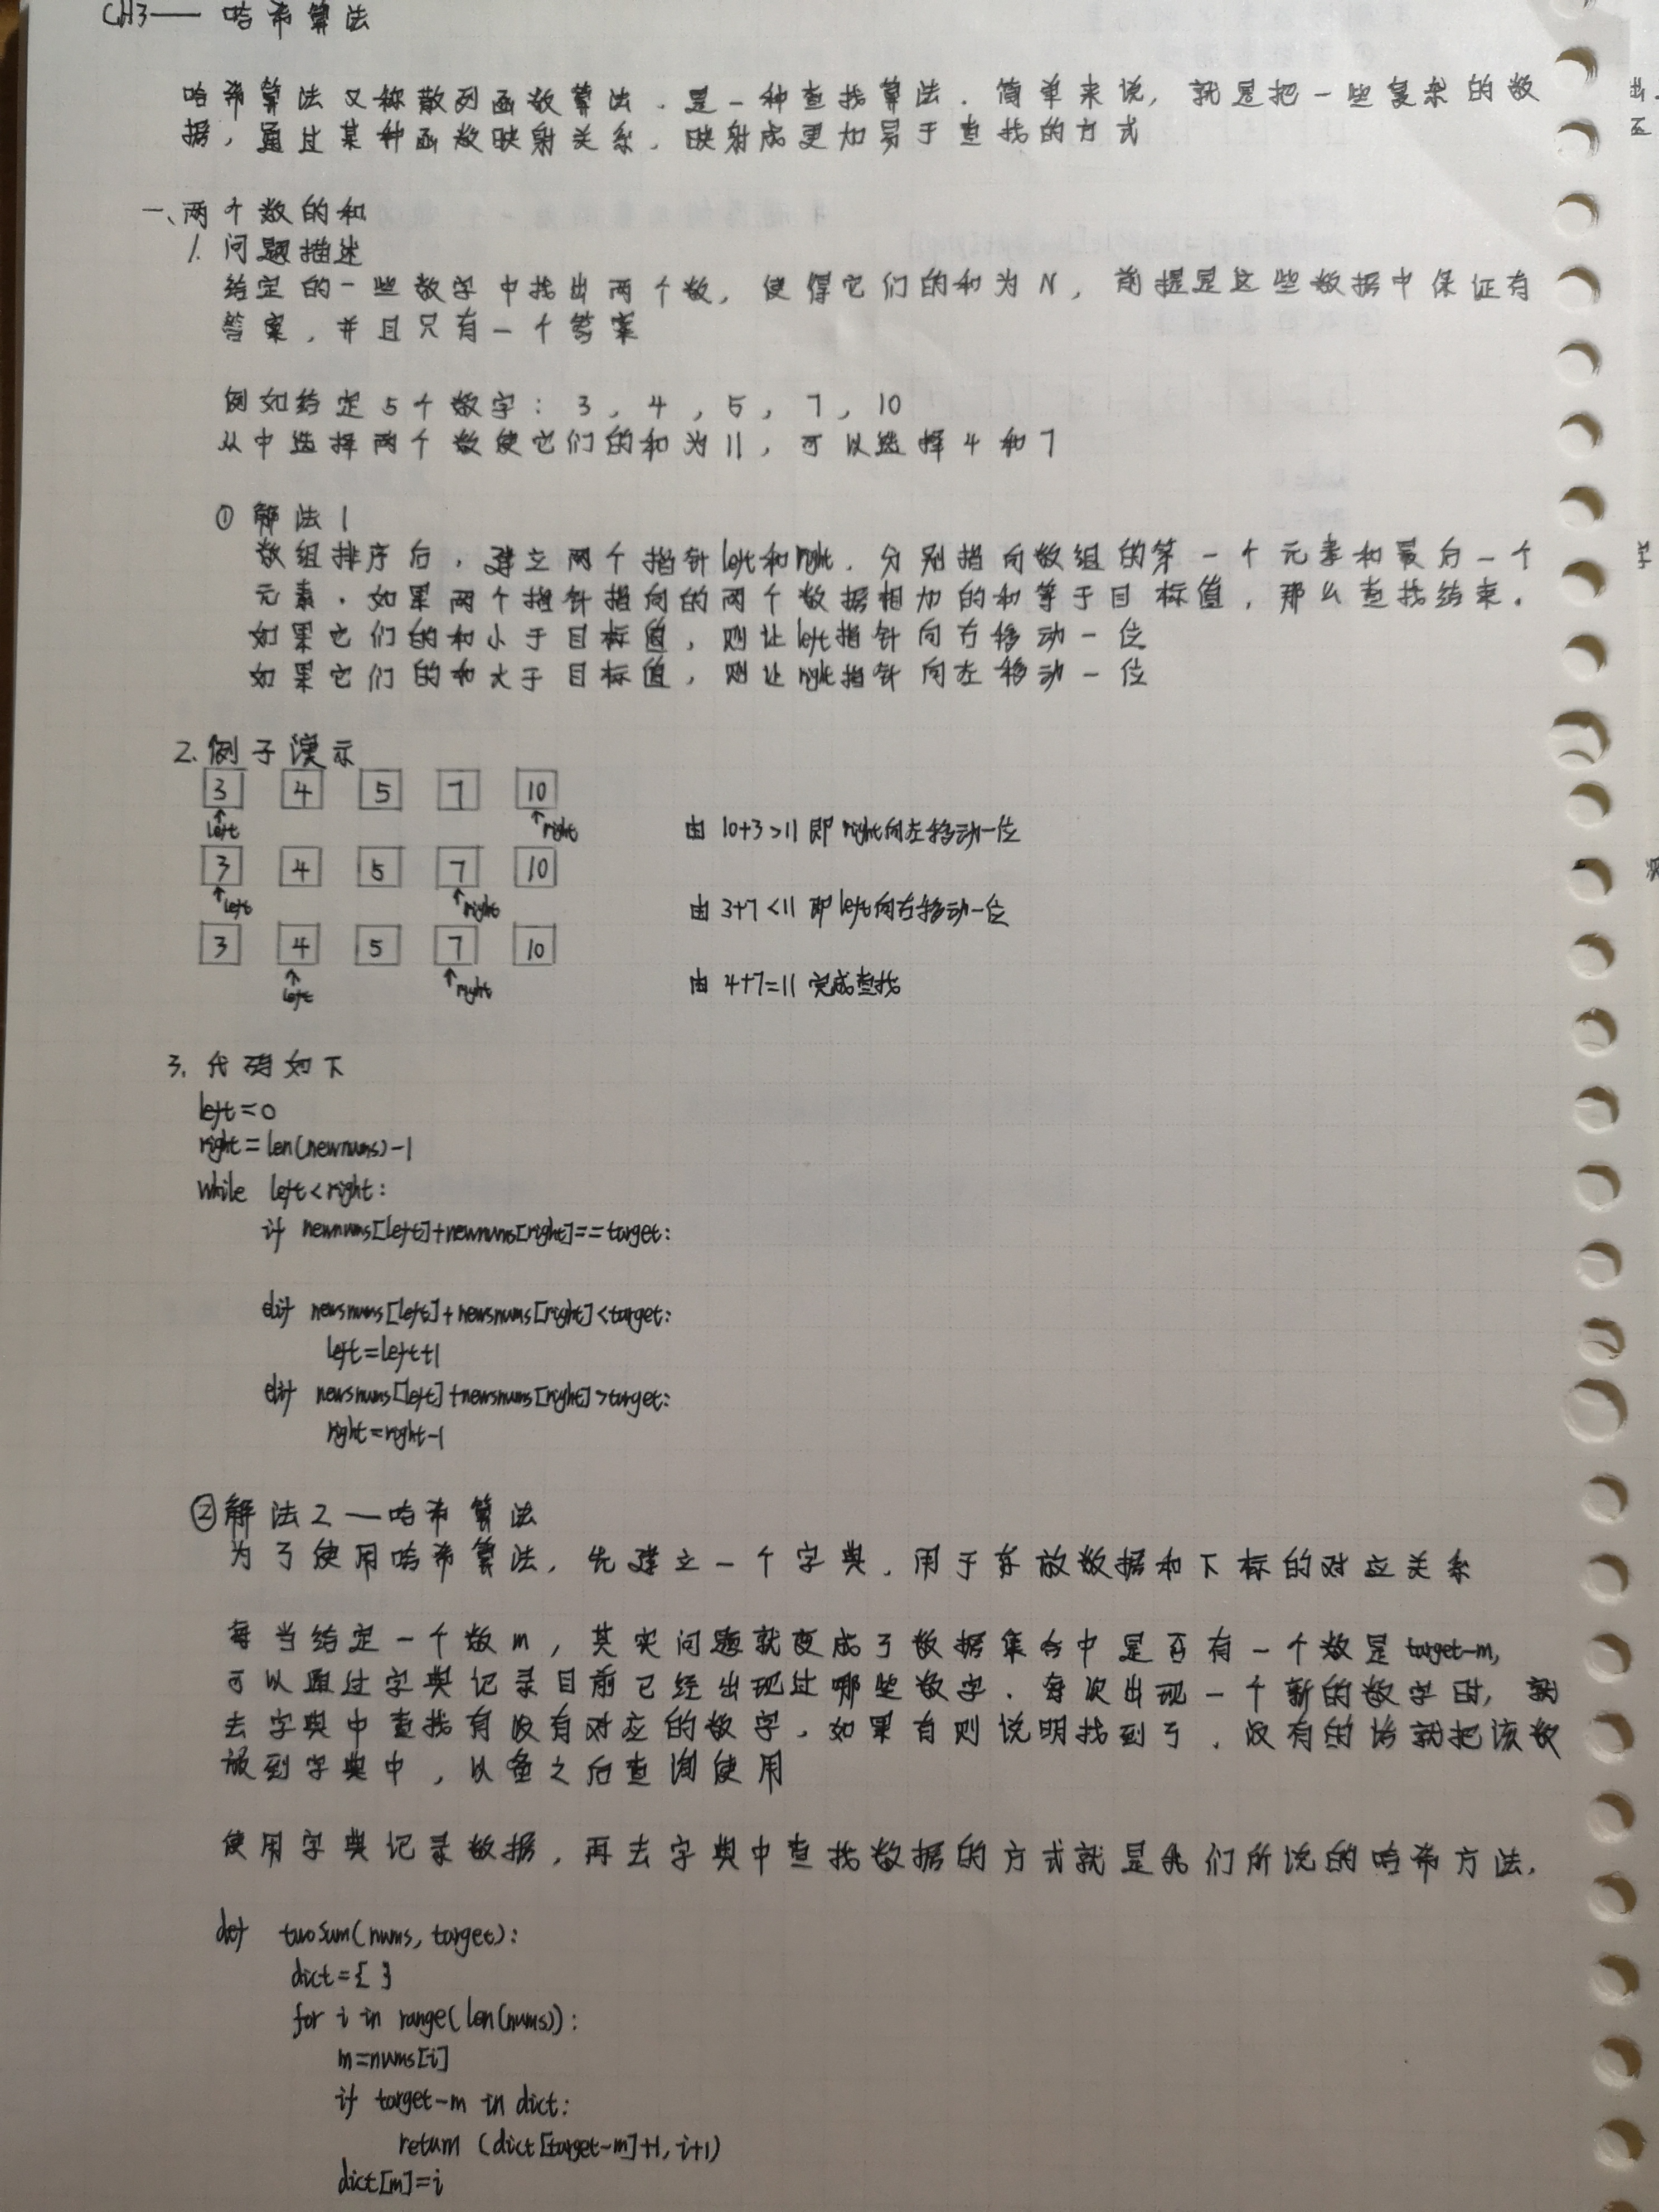 CH3—— 哈希算法
哈希算法又称散列函数算法，是一种查找算法．简单来说，就是把一些复杂的数
据，通过某种函数映射关系，映射成更加易于查找的方式
一、两个数的和
1. 问题描述
给定的一些数字中找出两个数，使得它们的和为N，前提是这些数据中保证有
答案，并且只有一个答案
例如给定5个数字：3，4，5，7，10
从中选择两个数使它们的和为11，可以选择4和7
① 解法1
数组排序后，建立两个指针left和right．分别指向数组的第一个元素和最后一个
元素．如果两个指针指向的两个数据相加的和等于目标值，那么查找结束．
如果它们的和小于目标值，则让left指针向右移动一位
如果它们的和大于目标值，则让right指针向左移动一位
2. 例子演示
3 4 5 7 10
left right 由 10+3>11 即 right向左移动一位
3 4 5 7 10
left right 由 3+7<11 即 left向右移动一位
3 4 5 7 10
left right 由 4+7=11 完成查找
3. 代码如下
left=0
right=len(newnums)-1
while left<right:
if newnums[left]+newnums[right]==target:
elif newsnums[left]+newsnums[right]<target:
left=left+1
elif newsnums[left]+newsnums[right]>target:
right=right-1
②解法2 —哈希算法
为了使用哈希算法，先建立一个字典，用于存放数据和下标的对应关系
每当给定一个数m，其实问题就变成了数据集合中是否有一个数是target-m,
可以通过字典记录目前已经出现过哪些数字．每次出现一个新的数字时，就
去字典中查找有没有对应的数字，如果有则说明找到了，没有的话就把该数
放到字典中，以备之后查询使用
使用字典记录数据，再去字典中查找数据的方式就是我们所说的哈希方法．
def twoSum(nums, target):
dict={ }
for i in range(len(nums)):
m=nums[i]
if target-m in dict:
return (dict[target-m]+1, i+1)
dict[m]=i